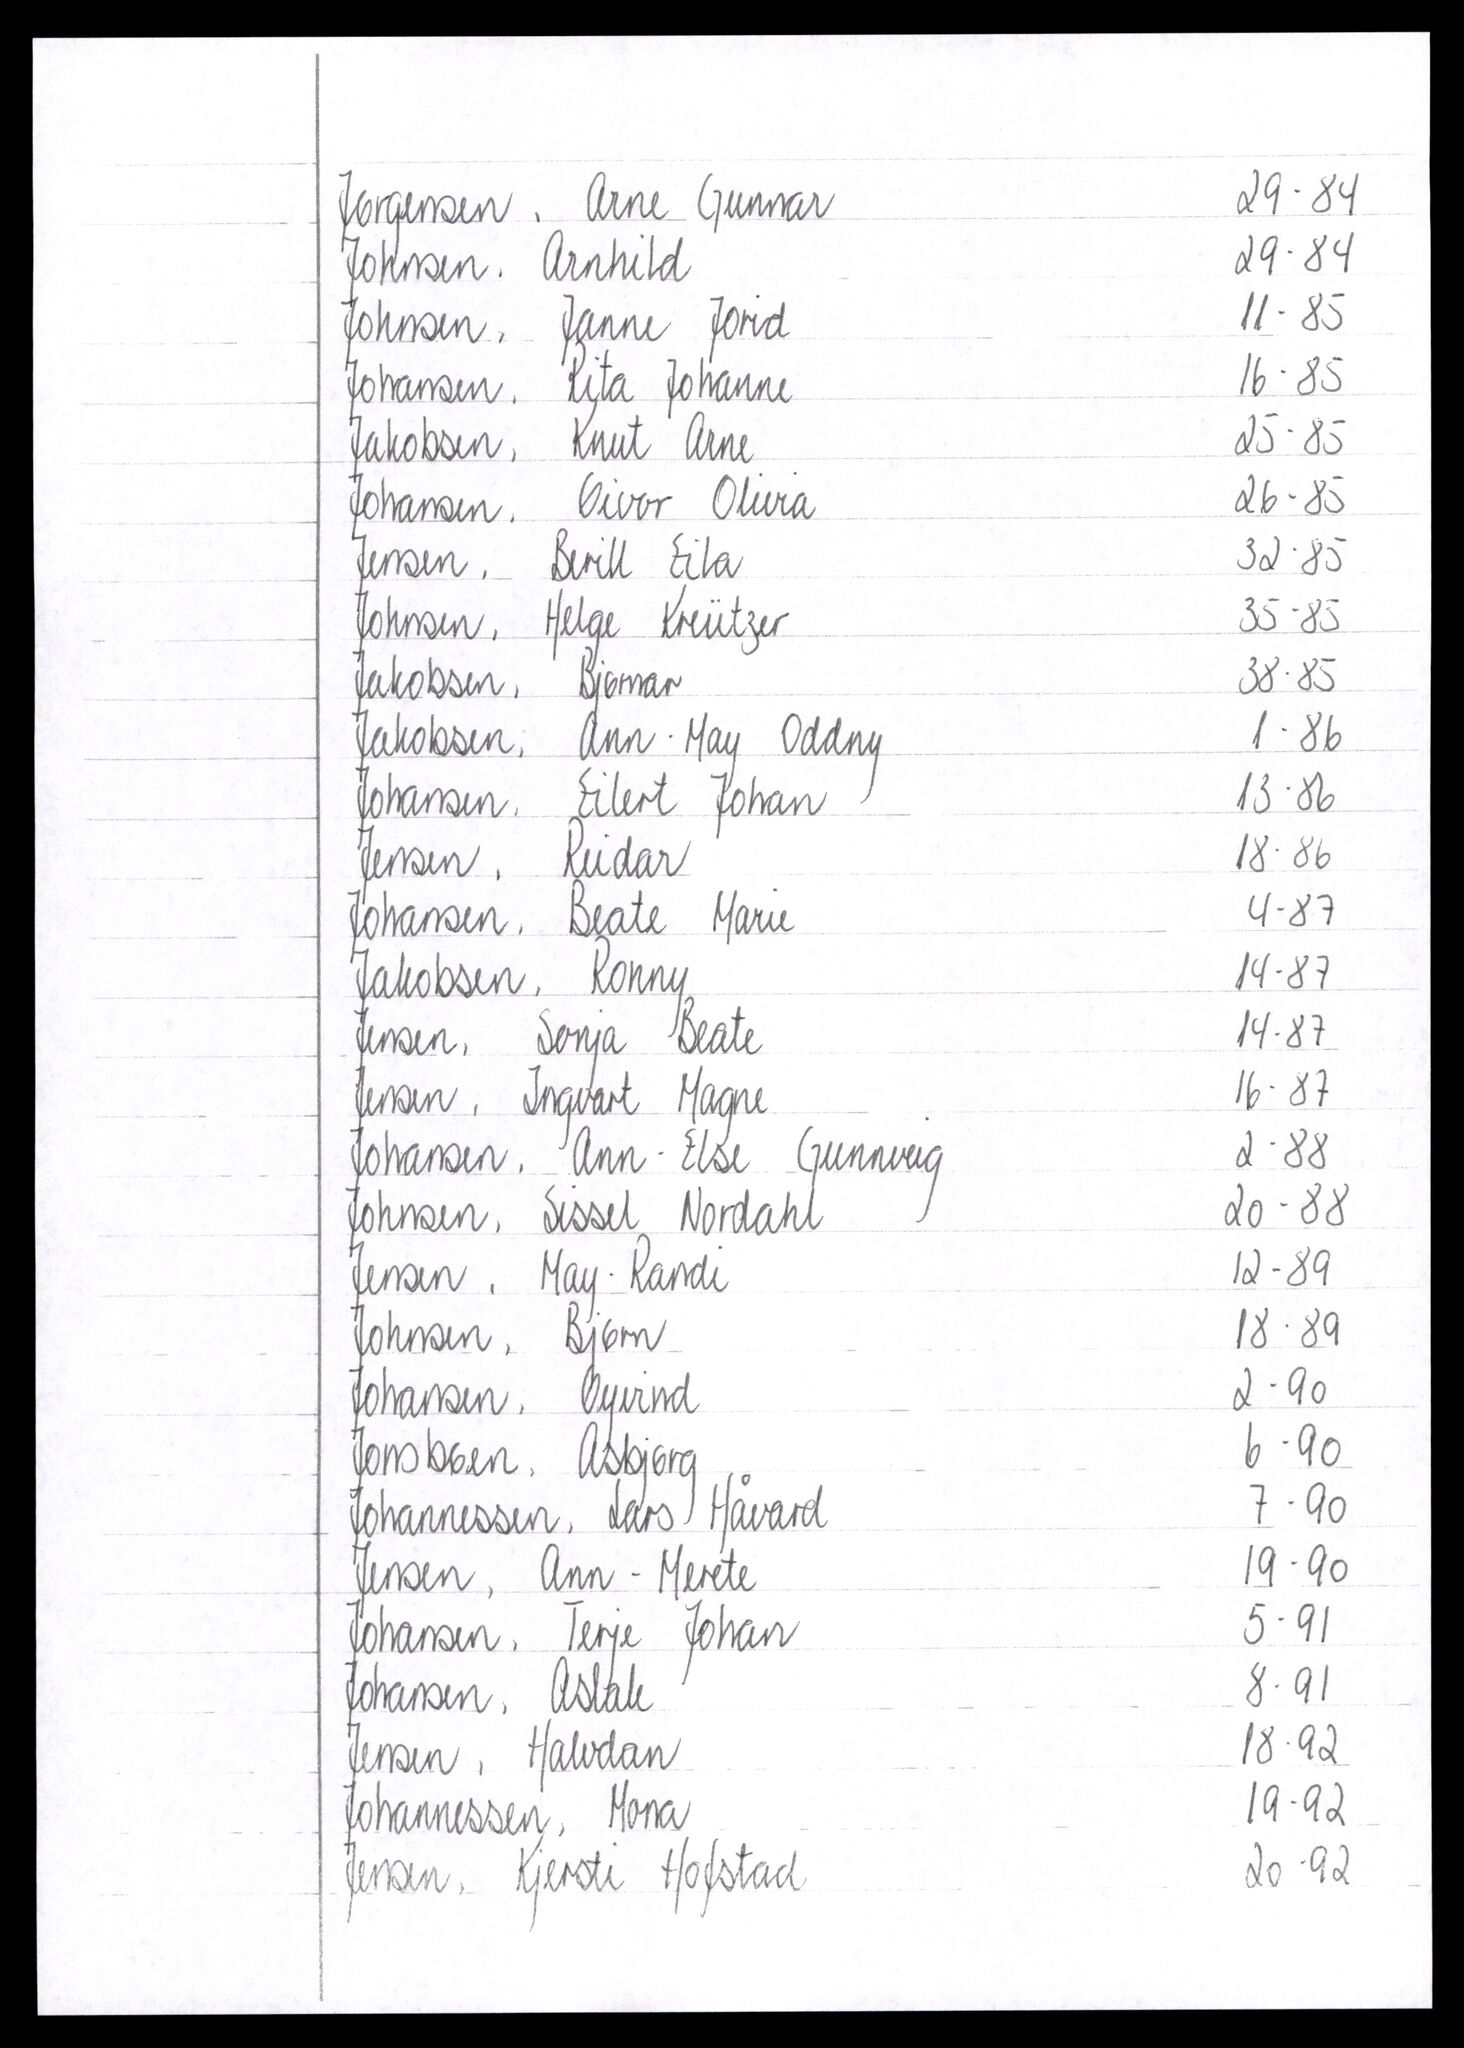 Jørgensen, Arne Gunnar 29-84
Johnsen, Arnhild 29-84
Johnsen, Janne Jorid 11-85
Johansen, Rita Johanne 16-85
Jakobsen, Knut Arne 25-85
Johansen, Eivor Olivia 26-85
Jensen, Berill Eila 32-85
Johnsen, Helge Kreützer 35-85
Jakobsen, Bjørnar 38-85
Jakobsen, Ann-May Oddny 1-86
Johansen, Eilert Johan 13-86
Jensen, Reidar 18-86
Johansen, Beate Marie 4-87
Jakobsen, Ronny 14-87
Jensen, Sonja Beate 14-87
Jensen, Ingvart Magne 16-87
Johansen, Ann-Else Gunnveig 2-88
Johnsen, Sissel Nordahl 20-88
Jensen, May-Randi 12-89
Johnsen, Bjørn 18-89
Johansen, Øyvind 2-90
Jonsbøen, Asbjørg 6-90
Johannessen, Lars Håvard 7-90
Jensen, Ann-Merete 19-90
Johansen, Terje Johan 5-91
Johansen, Aslak 8-91
Jensen, Halvdan 18-92
Johannessen, Mona 19-92
Jensen, Kjersti Hofstad 20-92